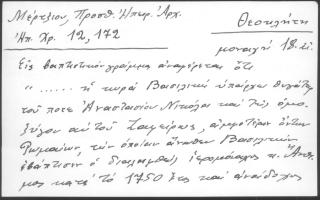 Μέρτζιου, Προσθ. Ἠπειρ. Ἀρχ.
Ἠπ. Χρ. 12, 172
Θεοκλήτη
μοναχή 18. αἰ.
Εἰς βαπτιστικὸν γράμμα ἀναφέρεται ὅτι
"...... ἡ κυρὰ Βασιλικὴ ὑπάρχει θυγάτηρ
τοῦ ποτε Ἀναστασίου Νικόλαι καὶ τῆς ὁμο-
ζύγου αὐτοῦ Σαμείρως, ἀμφοτέρων ὄντων
Ῥωμαίων, τὴν ὁποίαν ἄνωθεν Βασιλικὴν
ἐβάπτισεν ὁ διαληφθεὶς ἱερομόναχος π. Ἄνθι-
μος κατὰ τὸ 1750 ἔτος καὶ ἀνάδοχος